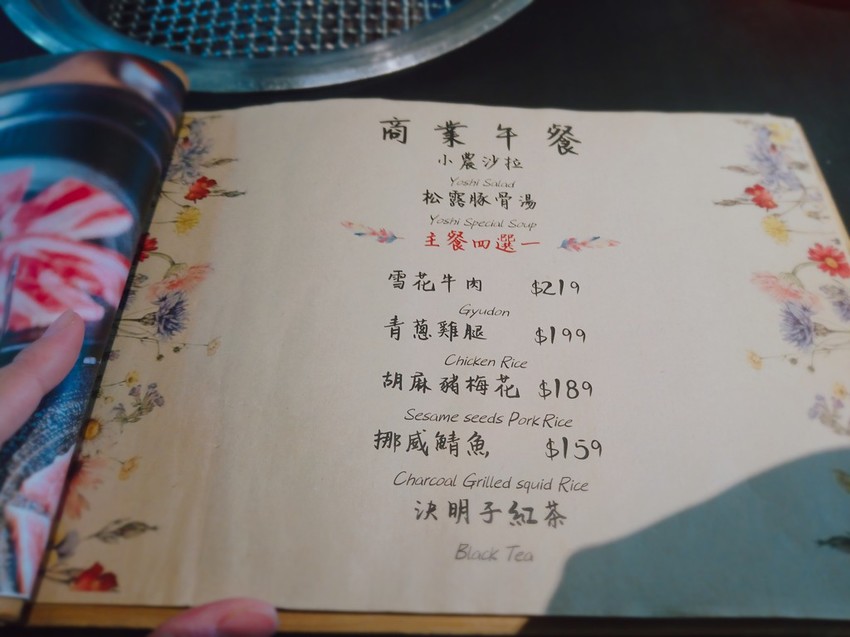 商業午餐
小農沙拉
Yoshi Salad
松露豚骨湯
Yoshi Special Soup
主餐四選一
雪花牛肉 $219
Gyudon
青蔥雞腿 $199
Chicken Rice
胡麻豬梅花 $189
Sesame seeds Pork Rice
挪威鯖魚 $159
Charcoal Grilled squid Rice
決明子紅茶
Black Tea